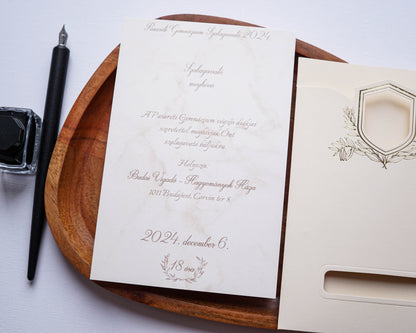 Piarista Gimnázium Szalagavató 2024
Szalagavató
meghívó
A Piarista Gimnázium végzős diákjai
szeretettel meghívják Önt
szalagavató báljukra.
Helyszín:
Budai Vigadó - Hagyományok Háza
1011 Budapest, Corvin tér 8.
2024. december 6.
18 óra